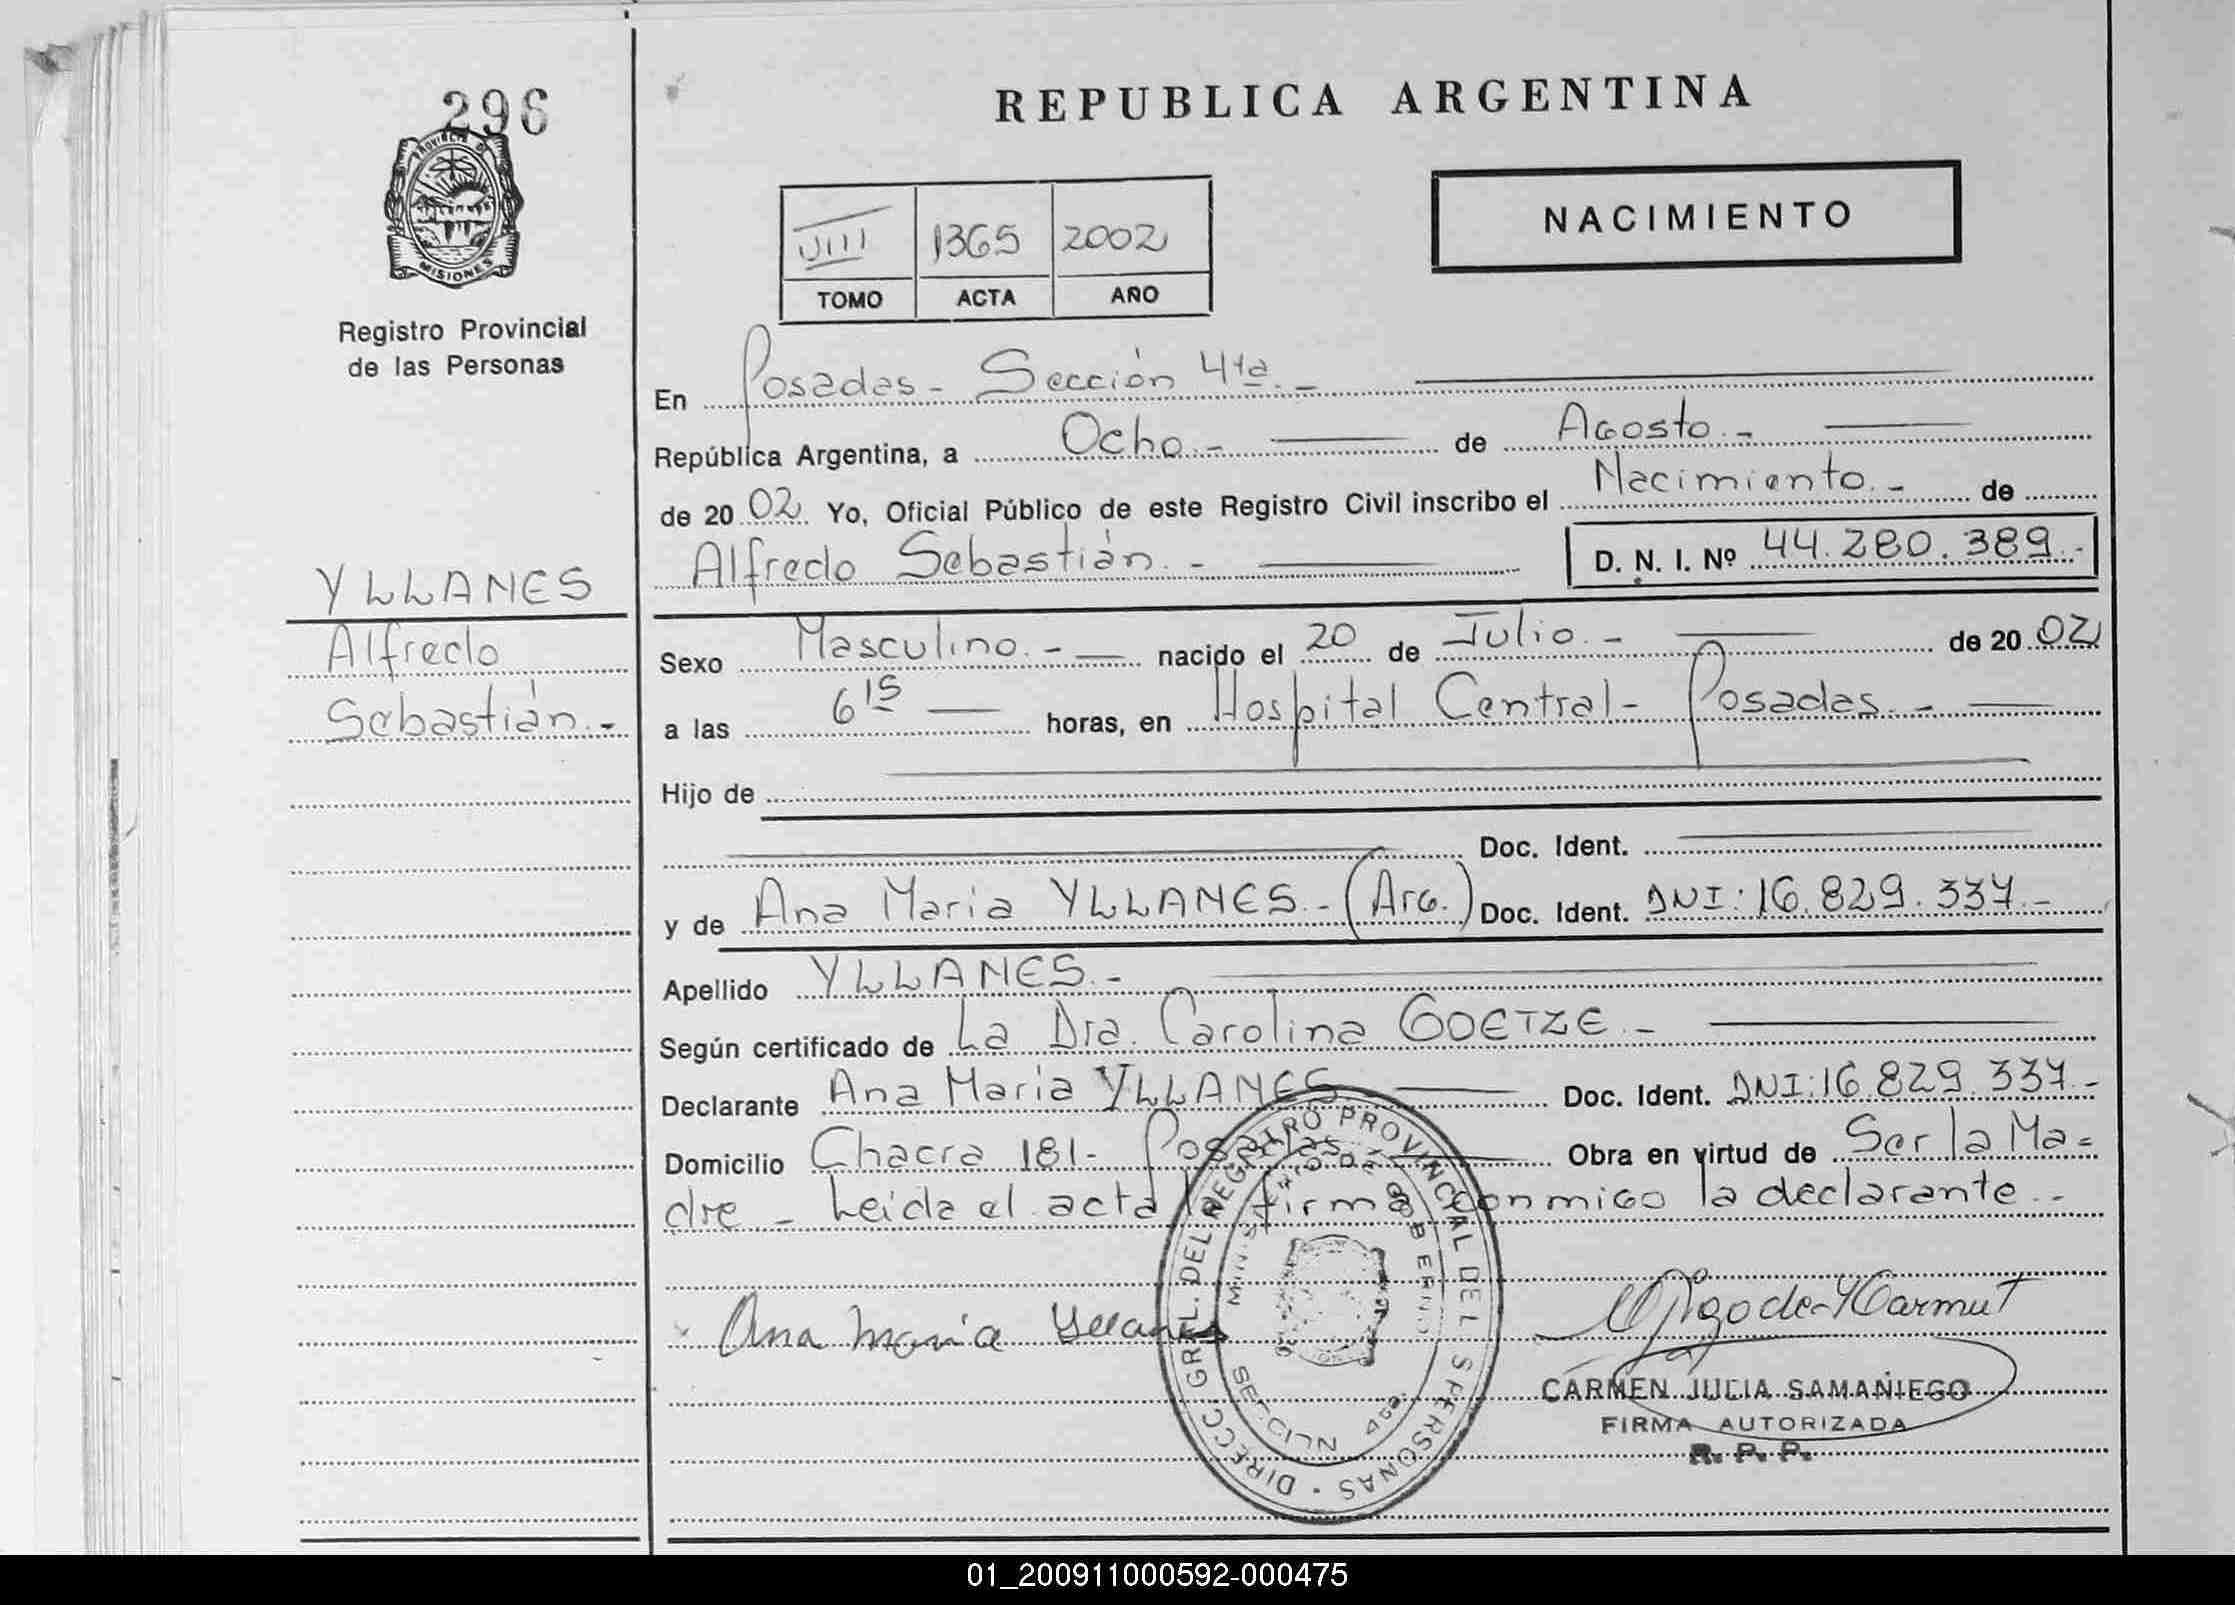 296
REPUBLICA ARGENTINA
PROVINCIA DE
MISIONES
Registro Provincial
de las Personas
VIII 1365 2002
TOMO ACTA AÑO
NACIMIENTO
En Posadas - Sección 4ta. -
República Argentina, a Ocho. - de Agosto. -
de 20 02 Yo, Oficial Público de este Registro Civil inscribo el Nacimiento. - de
Alfredo Sebastián. - D. N. I. Nº 44.280.389. -
YLLANES
Alfredo
Sebastián. -
Sexo Masculino. - nacido el 20 de Julio. - de 20 02
a las 6 15 horas, en Hospital Central - Posadas. -
Hijo de
Doc. Ident.
y de Ana Maria YLLANES. - (Arg.) Doc. Ident. DNI: 16.829.337. -
Apellido YLLANES. -
Según certificado de La Dra. Carolina GOETZE. -
Declarante Ana Maria YLLANES Doc. Ident. DNI: 16.829.337. -
Domicilio Chacra 181 - Posadas. - Obra en virtud de Ser la Ma=
dre - Leida el acta la firma conmigo la declarante. -
DIRECC. GRAL. DEL REGISTRO PROVINCIAL DE LS PERSONAS
MINISTERIO DE GOBIERNO
Ana maria Yllanes
CARMEN JULIA SAMANIEGO
FIRMA AUTORIZADA
R. P. P.
01_200911000592-000475